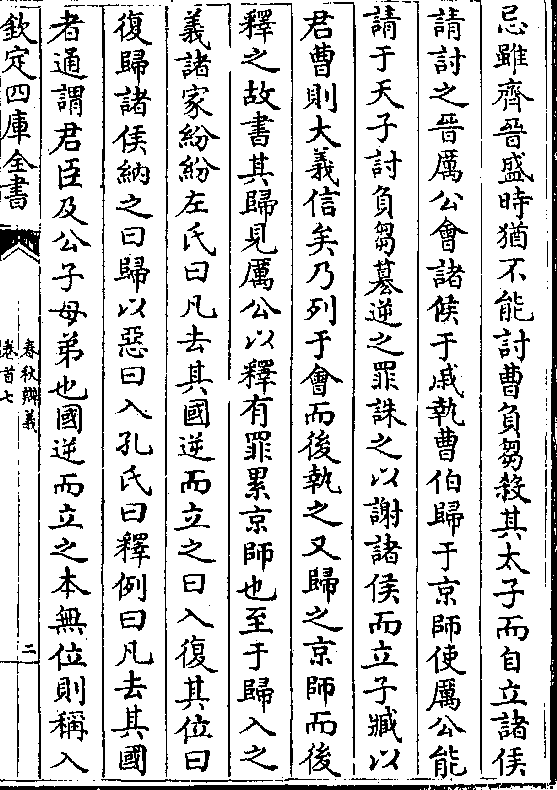 忌雖齊晉盛時猶不能討曹負芻殺其太子而自立諸侯
請討之晉厲公會諸侯于戚執曹伯歸于京師使厲公能
請于天子討負芻簒逆之罪誅之以謝諸侯而立子臧以
君曹則大義信矣乃列于會而後執之又歸之京師而後
釋之故書其歸見厲公以釋有罪累京師也至于歸入之
義諸家紛紛左氏曰凡去其國逆而立之曰入復其位曰
復歸諸侯納之曰歸以惡曰入孔氏曰釋例曰凡去其國
者通謂君臣及公子母弟也國逆而立之本無位則稱入
欽定四庫全書
春秋辯義
卷首七
二